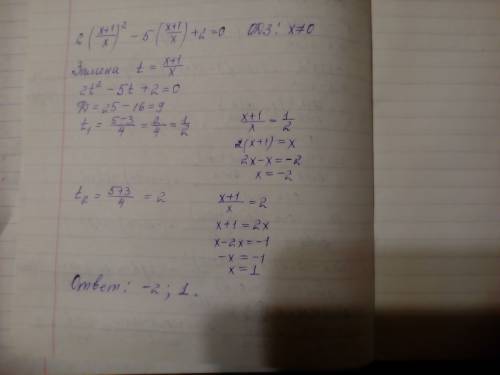 2(x+1/x)² - 5(x+1/x) + 2 = 0 ОДЗ: x≠0
Замена t = x+1/x
2t² - 5t + 2 = 0
D = 25 - 16 = 9
t₁ = 5-3/4 = 2/4 = 1/2
x+1/x = 1/2
2(x+1) = x
2x - x = -2
x = -2
t₂ = 5+3/4 = 2
x+1/x = 2
x+1 = 2x
x - 2x = -1
-x = -1
x = 1
Ответ: -2; 1.